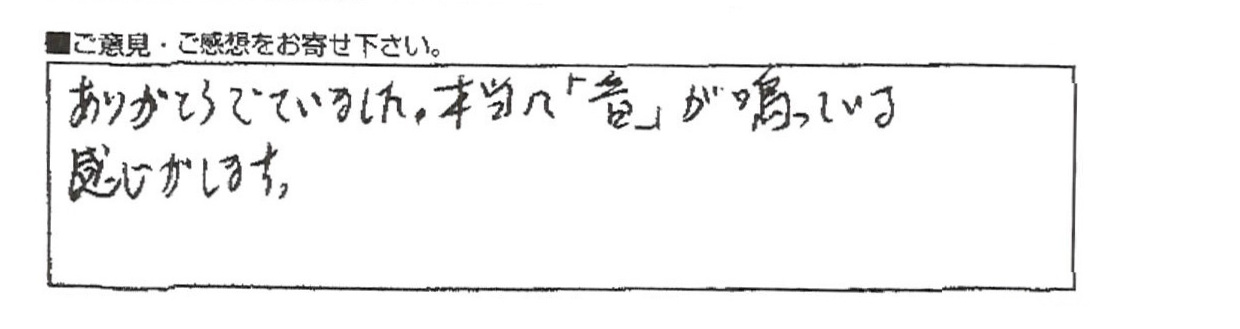 ■ご意見・ご感想をお寄せ下さい。
ありがとうございました。本当に「音」が鳴っている
感じがします。